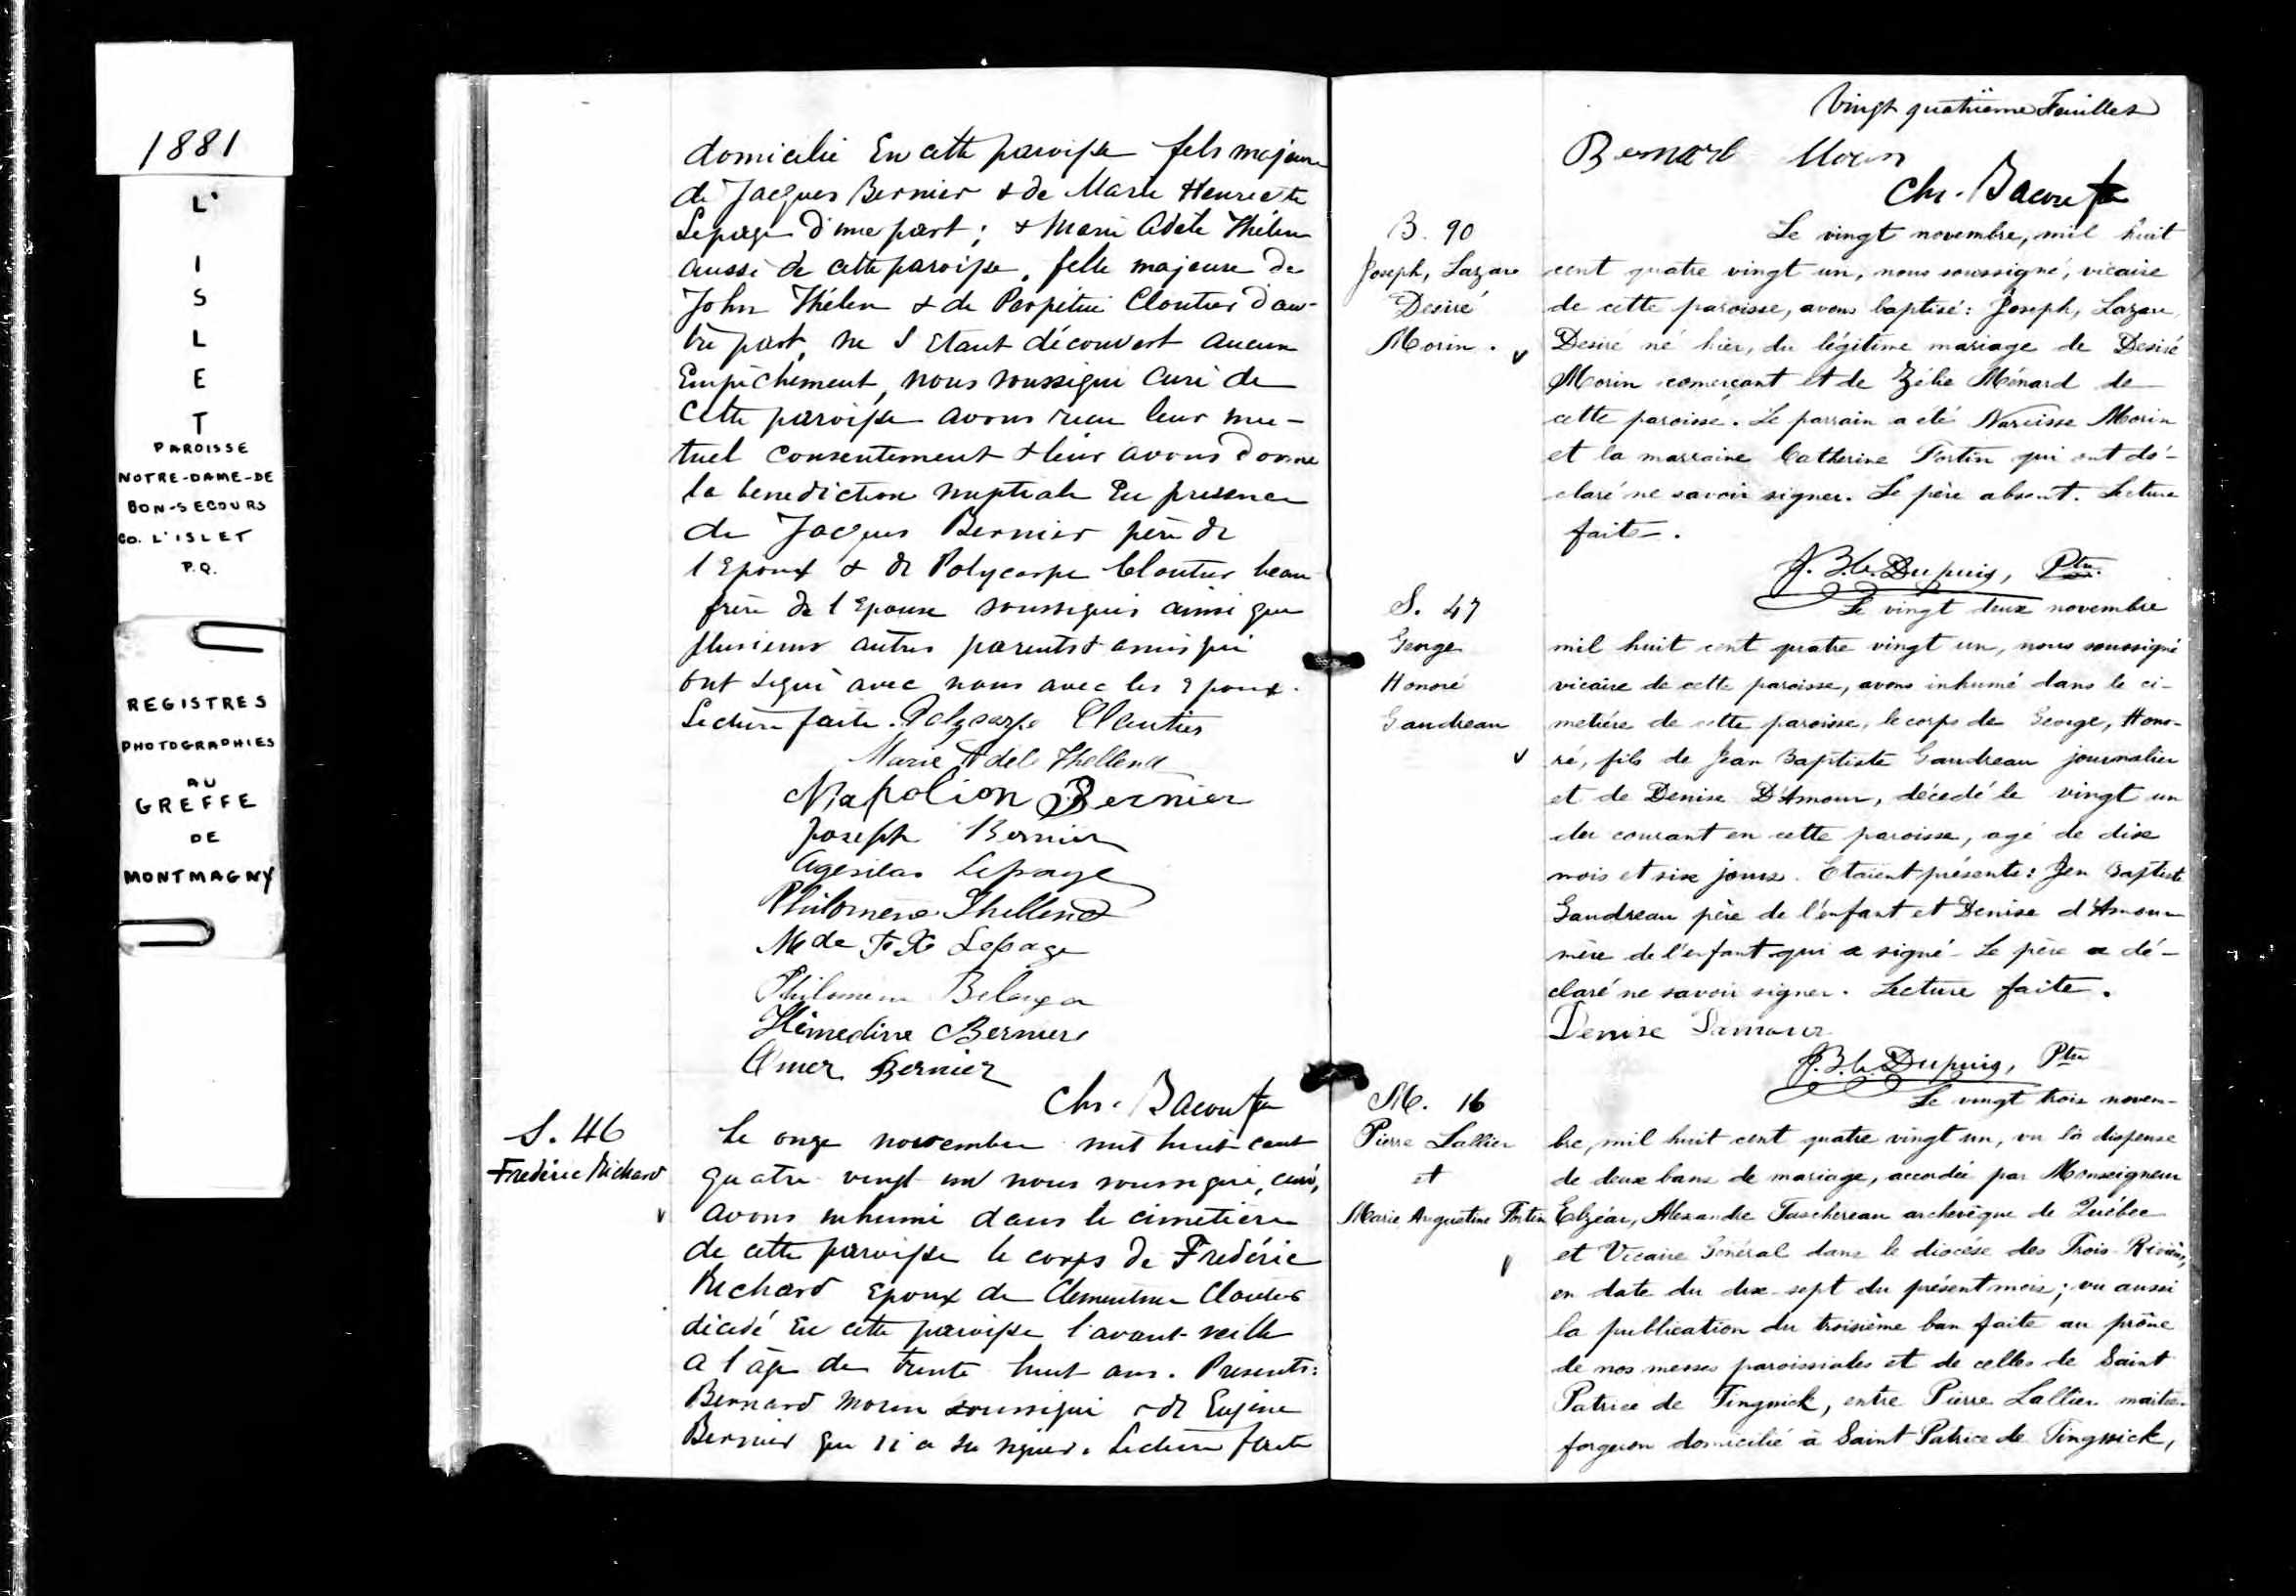 1881
L'
I
S
L
E
T
PAROISSE
NOTRE-DAME-DE
BON-SECOURS
CO. L'ISLET
P.Q.
REGISTRES
PHOTOGRAPHIES
AU
GREFFE
DE
MONTMAGNY
domicilié En cette paroisse fils majeur
de Jacques Bernier & de Marie Henriette
Lepage d'une part; & Marie Adèle Thélen
aussi de cette paroisse, fille majeure de
John Thélen & de Perpétue Cloutier d'au-
tre part, ne s'Etant découvert aucun
Empêchement, nous soussigné Curé de
Cette paroisse avons reçu leur mu-
tuel Consentement & leur avons donné
la benediction nuptiale En presence
de Jacques Bernier père de
l'Epoux & de Polycarpe Cloutier beau
frère de l'Epouse soussignés ainsi que
plusieurs autres parents & amis qui
ont signé avec nous avec les Epoux.
Lecture faite. Polycarpe Cloutier
Marie Adele Thellend
Napolion Bernier
Joseph Bernier
Agesilas Lepage
Philomène Thellend
Mde F X Lepage
Philomene Belanger
Hèmedine Bernier
Omer Bernier
Chs. Bacon ptre
S. 46
Frédéric Richard
Le onze novembre mil huit cent
quatre vingt un nous soussigné, curé,
avons inhumé dans le cimetière
de cette paroisse le corps de Frédéric
Richard Epoux de Clementine Cloutier
décédé En cette paroisse l'avant-veille
a l'âge de trente huit ans. Presents:
Bernard Morin soussigné & de Eugène
Bernier qui n'a su signer. Lecture faite
Vingt quatrième Feuillet
Bernard Morin
Chs. Bacon ptre
B. 90
Joseph, Lazare
Desiré
Morin.
Le vingt novembre, mil huit
cent quatre vingt un, nous soussigné, vicaire
de cette paroisse, avons baptisé: Joseph, Lazare,
Desiré né hier, du légitime mariage de Desiré
Morin comerçant et de Zélie Ménard de
cette paroisse. Le parrain a été Narcisse Morin
et la marraine Catherine Fortin qui ont dé-
claré ne savoir signer. Le père absent. Lecture
faite.
J. B. C. Dupuis, Ptre.
S. 47
George
Honoré
Gaudreau
Le vingt deux novembre
mil huit cent quatre vingt un, nous soussigné
vicaire de cette paroisse, avons inhumé dans le ci-
metière de cette paroisse, le corps de George, Hono-
ré, fils de Jean Baptiste Gaudreau journalier
et de Denise D'Amour, décedé le vingt un
du courant en cette paroisse, agé de dix
mois et six jours. Etaient présents: Jen Baptiste
Gaudreau père de l'enfant et Denise d'Amour
mère de l'enfant qui a signé - Le père a dé-
claré ne savoir signer. Lecture faite.
Denise Damour
J. B. C. Dupuis, Ptre
M. 16
Pierre Lallier
et
Marie Augustine Fortin
Le vingt trois novem-
bre, mil huit cent quatre vingt un, vu la dispense
de deux bans de mariage, accordée par Monseigneur
Elzéar, Alexandre Taschereau archevêque de Québec
et Vicaire Général dans le diocése des Trois-Rivières,
en date du dix-sept du présent mois; vu aussi
la publication du troisième ban faite au prône
de nos messes paroissiales et de celles de Saint
Patrice de Tingwick, entre Pierre Lallier maître-
forgeron domicilié à Saint Patrice de Tingwick,